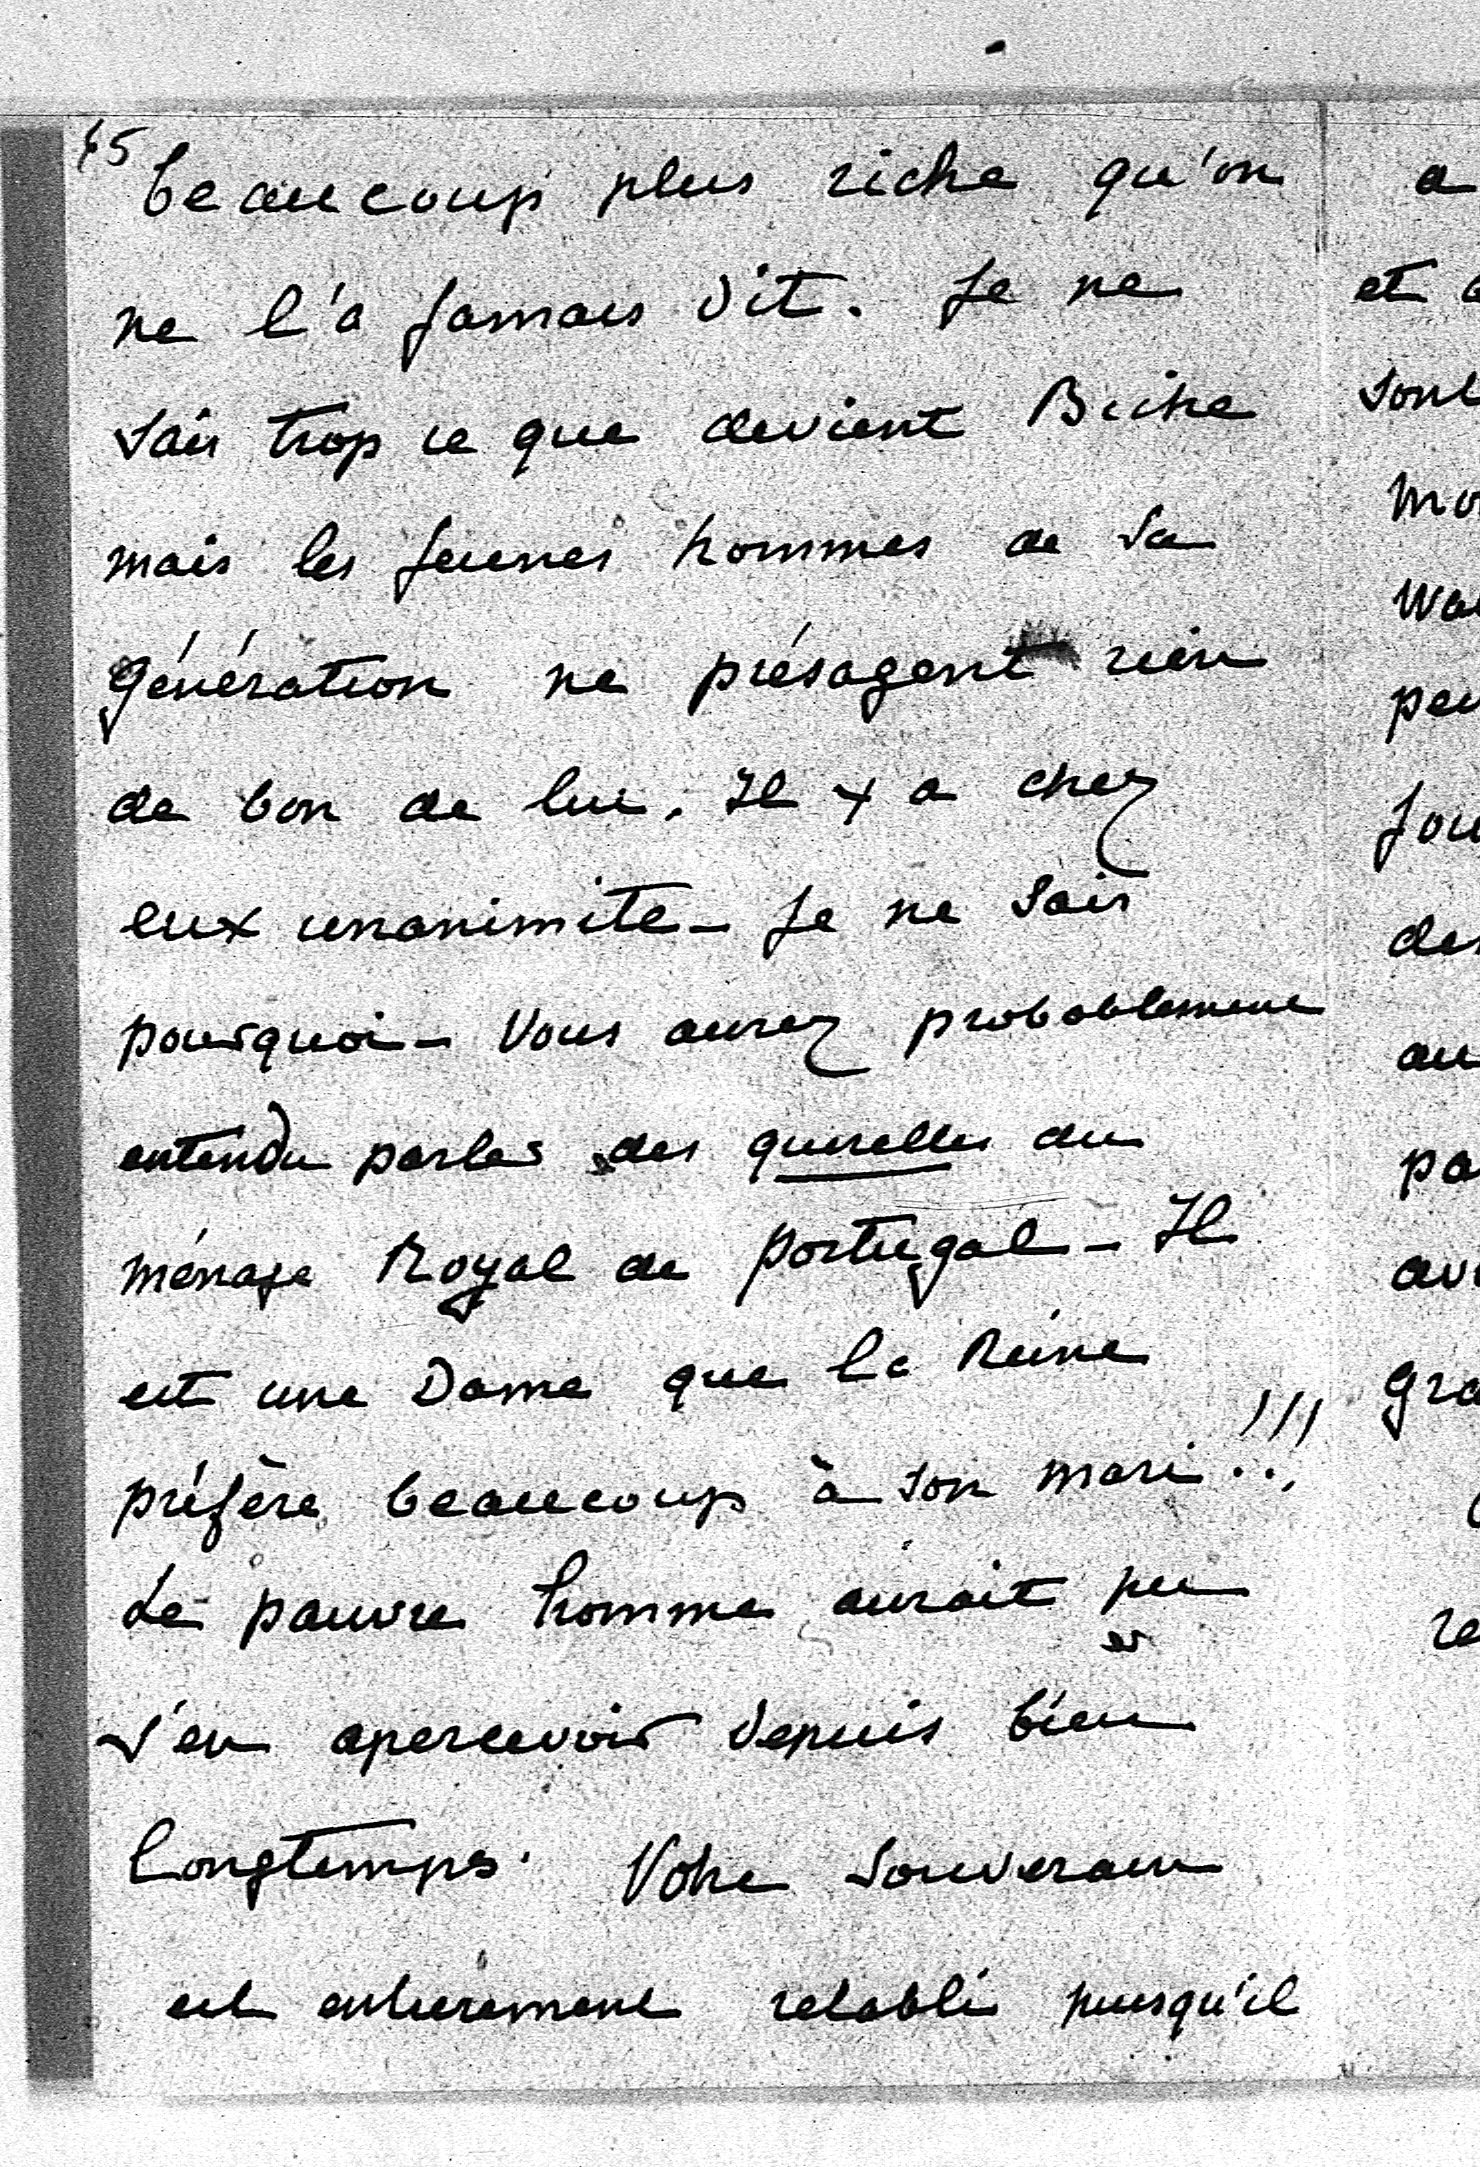 beaucoup plus riche qu'on
ne l'a jamais dit. Je ne
sais trop ce que devient
mais les jeunes hommes de sa
génération ne présagent rien
de bon de lui. Il y a chez
eux unanimité_ Je ne sais
pourquoi_ Vous aurez probablement
entendu parler des querelles du
ménage Royal de Portugal_ Il
est une Dame que la Reine
préfère beaucoup à son mari!!!
Le pauvre homme aurait pu
s'en apercevoir depuis bien
longtemps. Votre Souverain
est entierement retabli puisqu'il
a
et
sont